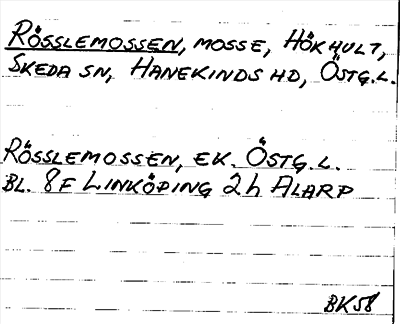 RÖSSLEMOSSEN, MOSSE, HÖKHULT,
SKEDA SN, HANEKINDS HD, ÖSTG.L.
RÖSSLEMOSSEN, EK. ÖSTG.L.
BL. 8F LINKÖPING 2h ALARP
BK58